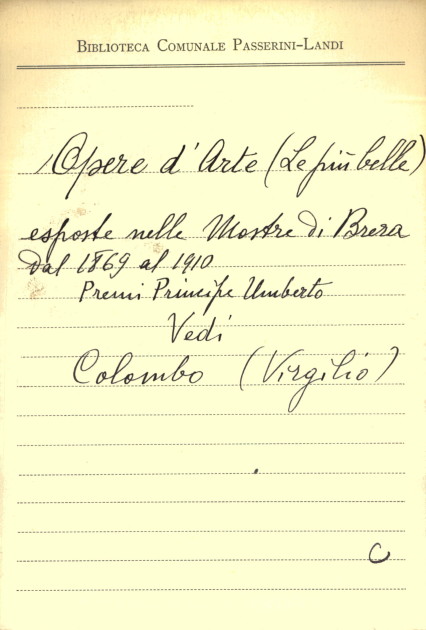 BIBLIOTECA COMUNALE PASSERINI-LANDI
Opere d'Arte (Le più belle)
esposte nelle Mostre di Brera
dal 1869 al 1910
Premi Principe Umberto
Vedi
Colombo (Virgilio)
C